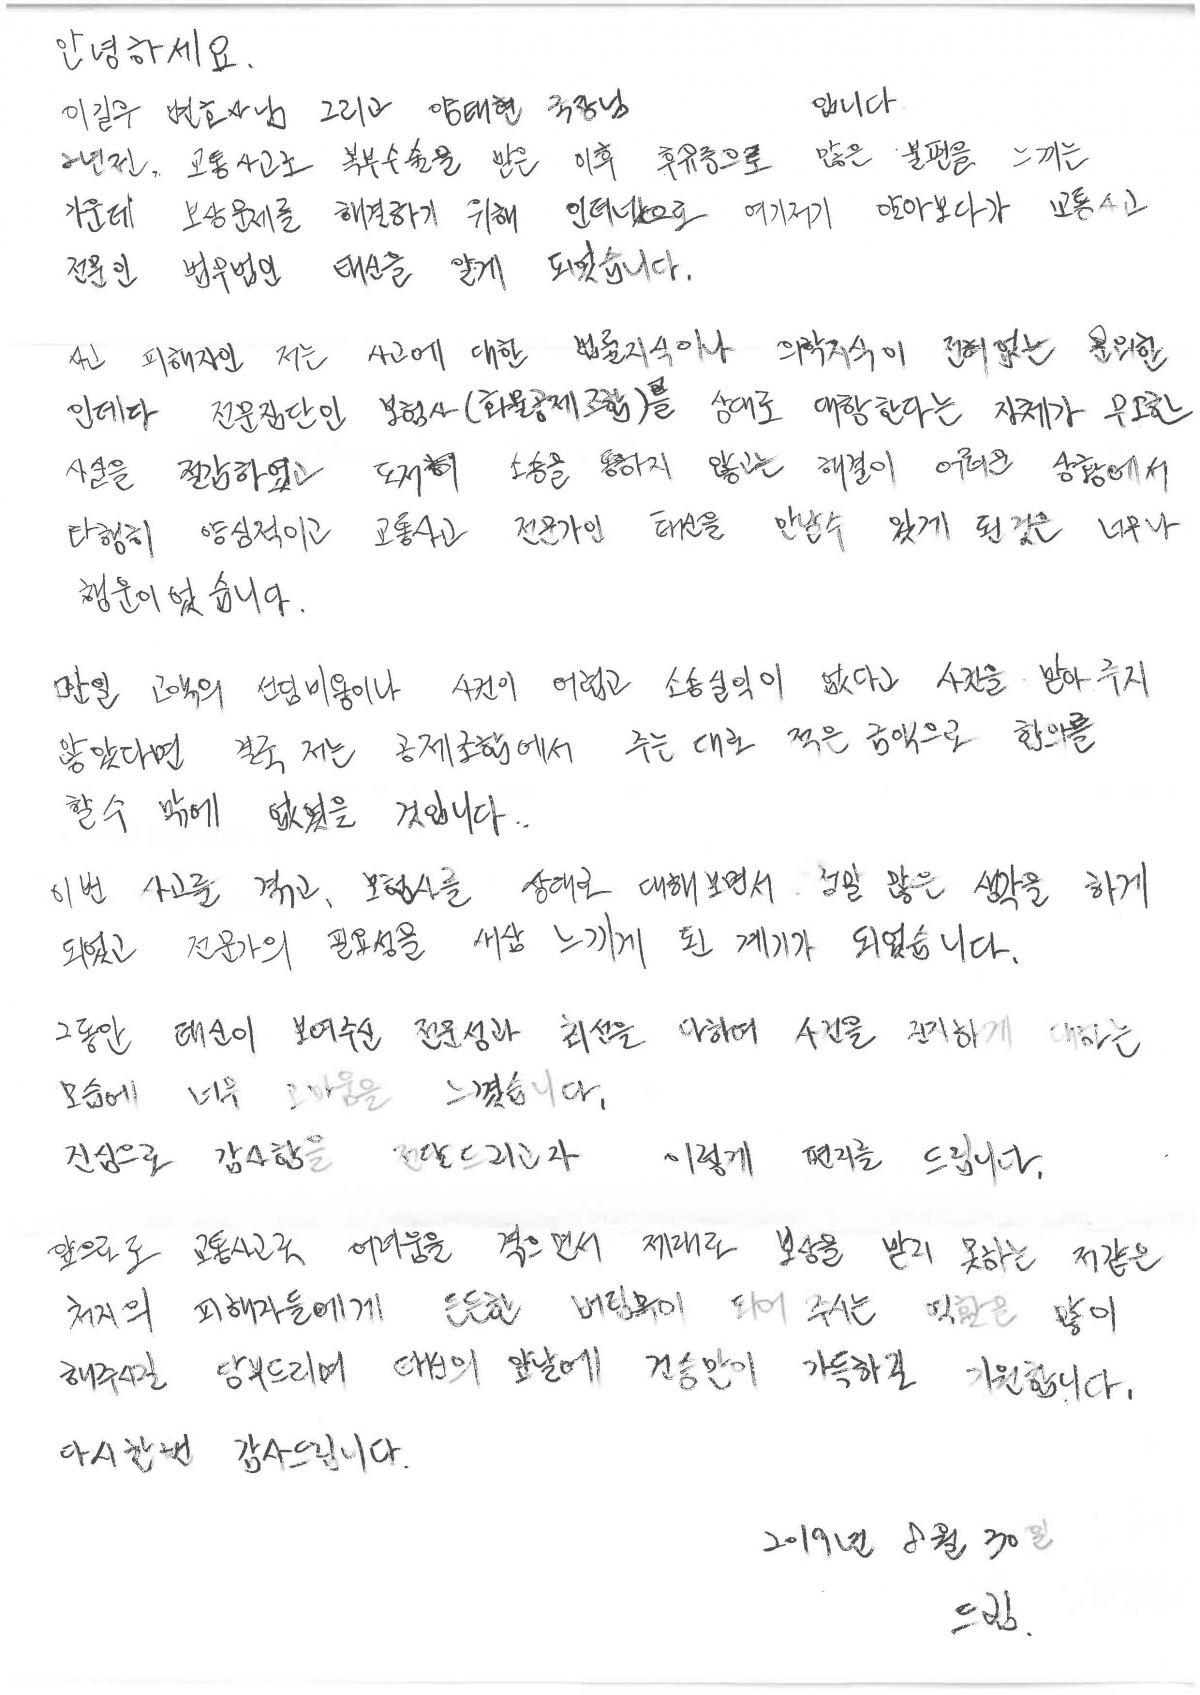 안녕하세요.
이길우 변호사님 그리고 양태현 국장님 입니다
2년전, 교통사고로 복부수술을 받은 이후 후유증으로 많은 불편을 느끼는
가운데 보상문제를 해결하기 위해 인터넷으로 여기저기 알아보다가 교통사고
전문인 법무법인 태신을 알게 되었습니다.
사고 피해자인 저는 사고에 대한 법률지식이나 의학지식이 전혀없는 문외한
인데다 전문집단인 보험사(화물공제조합)를 상대로 대항한다는 자체가 무모한
사실을 절감하였고 도저히 소송을 통하지 않고는 해결이 어려운 상황에서
다행히 양심적이고 교통사고 전문가인 태신을 만날수 있게 된것은 너무나
행운이었습니다.
만일 고액의 선임비용이나 사건이 어렵고 소송실익이 없다고 사건을 받아주지
않았다면 결국 저는 공제조합에서 주는대로 적은 금액으로 합의를
할수 밖에 없었을 것입니다..
이번 사고를 겪고, 보험사를 상대로 대해보면서 정말 많은 생각을 하게
되었고 전문가의 필요성을 새삼 느끼게 된 계기가 되었습니다.
그동안 태신이 보여주신 전문성과 최선을 다하여 사건을 진지하게 대하는
모습에 너무 고마움을 느꼈습니다.
진심으로 감사함을 전달드리고자 이렇게 편지를 드립니다.
앞으로도 교통사고로 어려움을 격으면서 제대로 보상을 받지 못하는 저같은
처지의 피해자들에게 든든한 버팀목이 되어 주시는 역할을 많이
해주시길 당부드리며 태신의 앞날에 건승만이 가득하길 기원합니다.
다시한번 감사드립니다.
2019년 8월 30일
드림.